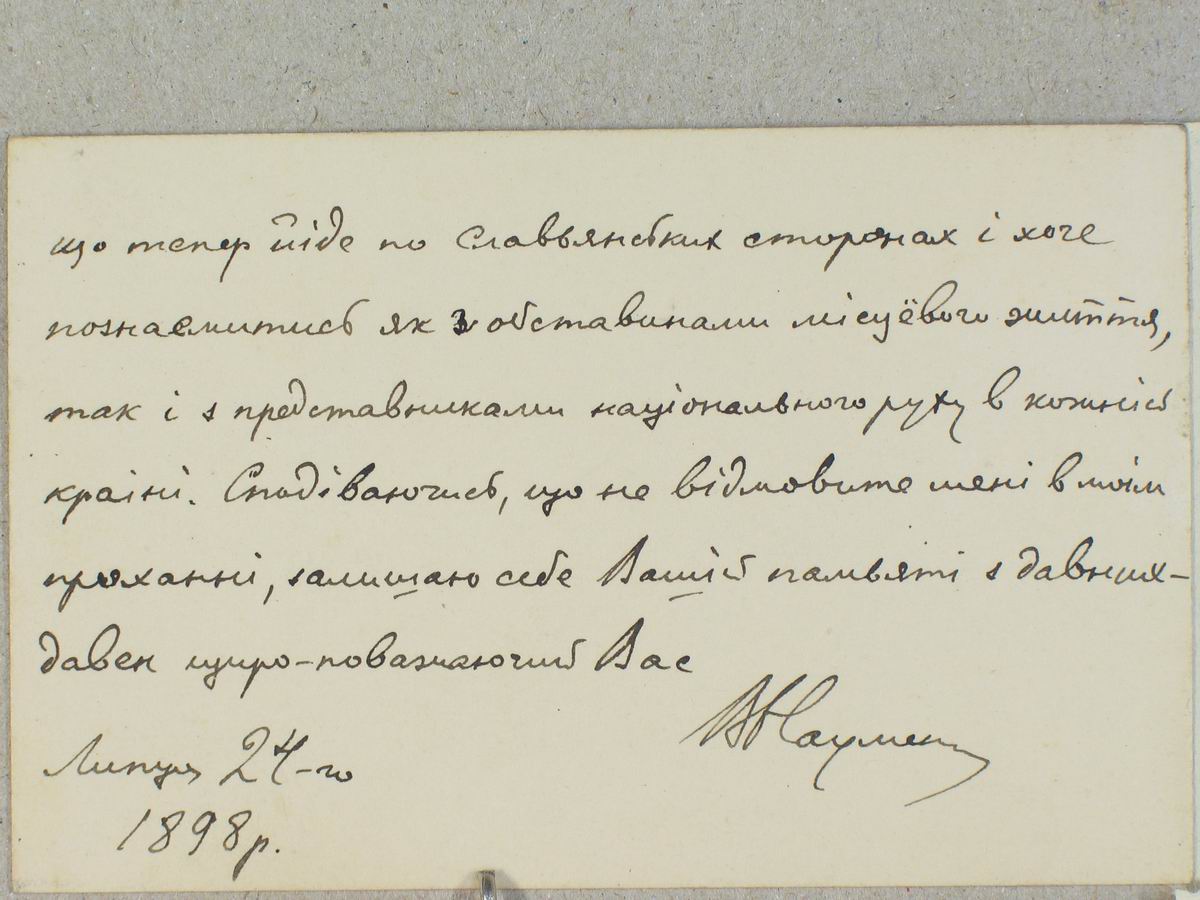 що тепер йіде по Славьянських сторонах і хоче
познаємитись як з обставинами місцёвого життя,
так і з представниками національного руху в кожній
країні. Сподіваючись, що не відмовите мені в моїм
проханні, залишаю себе Вашій памьяті з давних-
давен щиро-поважаючий Вас
В Науменко
Липця 24-го
1898 р.